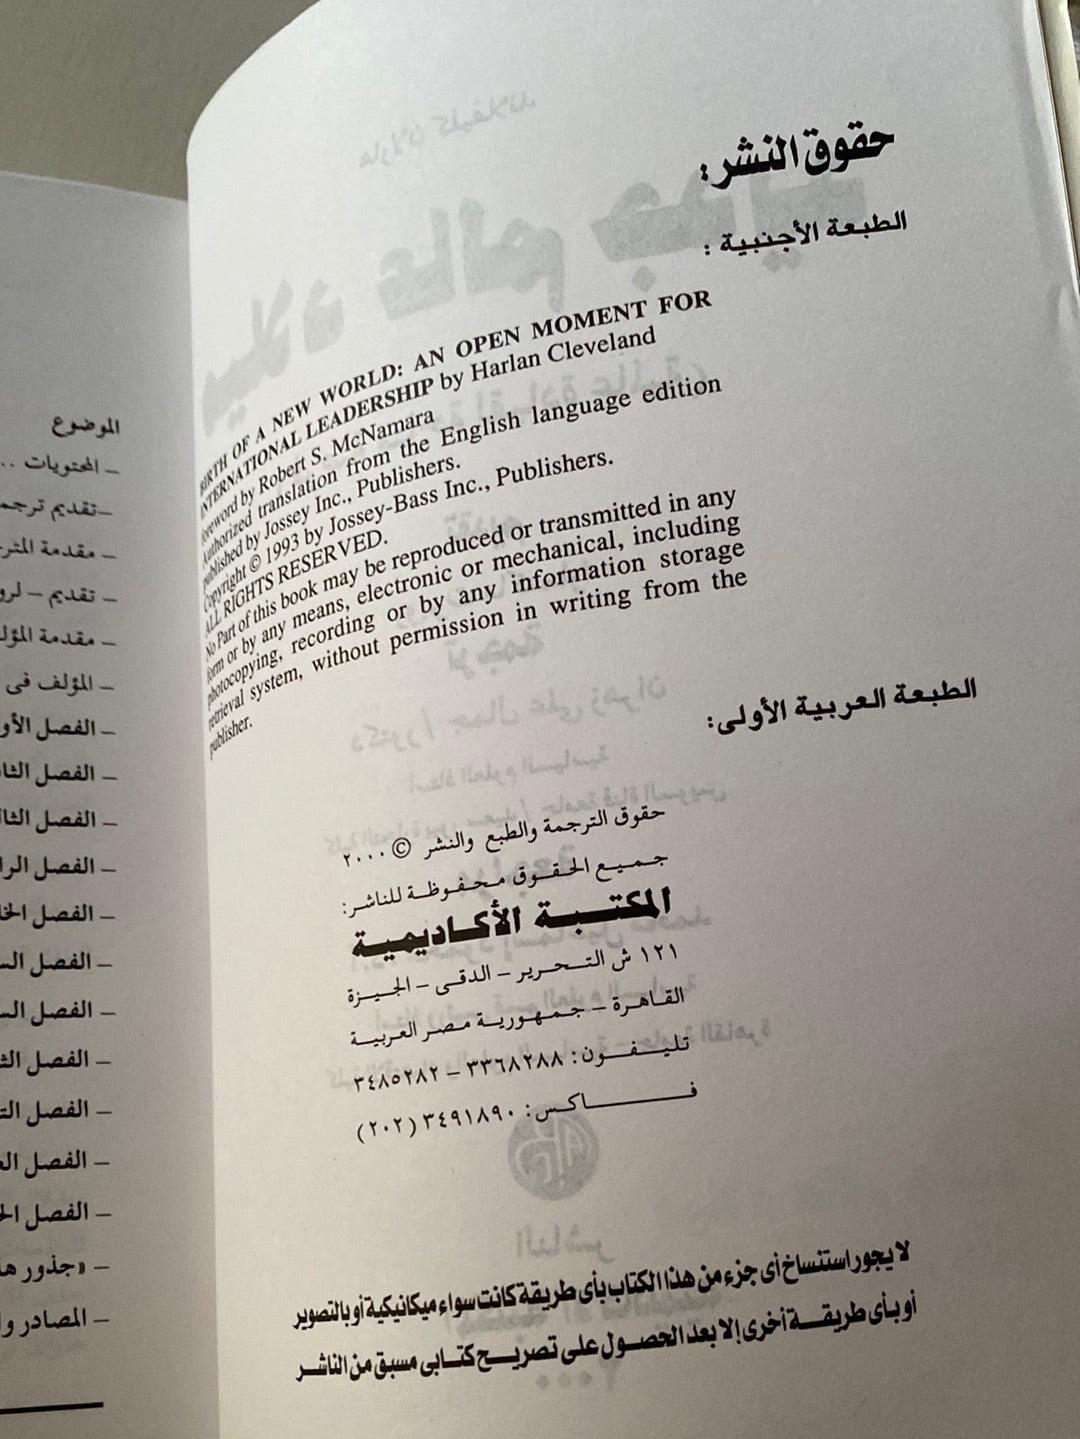 حقوق النشر:
الطبعة الأجنبية :
BIRTH OF A NEW WORLD: AN OPEN MOMENT FOR
INTERNATIONAL LEADERSHIP by Harlan Cleveland
Foreword by Robert S. McNamara
Authorized translation from the English language edition
published by Jossey Inc., Publishers.
Copyright © 1993 by Jossey-Bass Inc., Publishers.
ALL RIGHTS RESERVED.
No Part of this book may be reproduced or transmitted in any
form or by any means, electronic or mechanical, including
photocopying, recording or by any information storage
retrieval system, without permission in writing from the
publisher.
الطبعة العربية الأولى:
حقوق الترجمة والطبع والنشر © ٢٠٠٠
جميع الحقوق محفوظة للناشر:
المكتبة الأكاديمية
١٢١ ش التحرير – الدقى – الجيزة
القاهرة – جمهورية مصر العربية
تليفون: ٣٣٦٨٢٨٨ – ٣٤٨٥٢٨٢
فاكس: ٣٤٩١٨٩٠ (٢٠٢)
لا يجوز استنساخ أى جزء من هذا الكتاب بأى طريقة كانت سواء ميكانيكية أو بالتصوير
أو بأى طريقة أخرى إلا بعد الحصول على تصريح كتابى مسبق من الناشر
الموضوع
– المحتويات ..
– تقديم
– مقدمة
– تقديم –
– مقدمة
– المؤلف فى
– الفصل
– الفصل
– الفصل
– الفصل
– الفصل
– الفصل
– الفصل
– الفصل
– الفصل
– الفصل
– الفصل
– «جذور
– المصادر